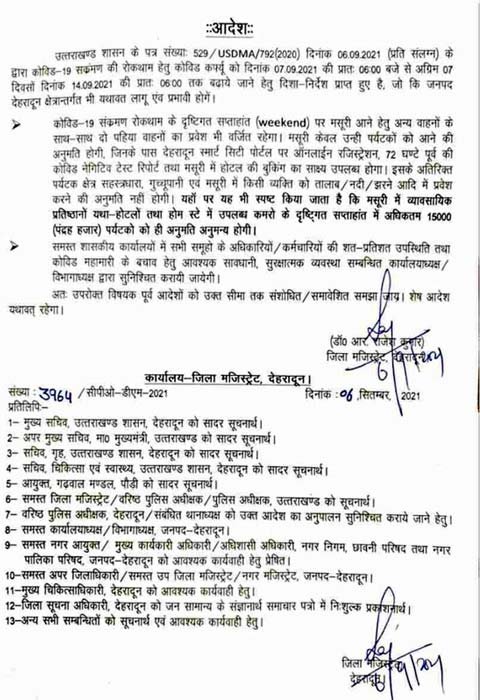 ::आदेश::
उत्तराखण्ड शासन के पत्र संख्याः 529/USDMA/792(2020) दिनांक 06.09.2021 (प्रति संलग्न) के
द्वारा कोविड-19 सक्रंमण की रोकथाम हेतु कोविड कर्फ्यू को दिनांक 07.09.2021 की प्रातः 06:00 बजे से अग्रिम 07
दिवसों दिनांक 14.09.2021 की प्रातः 06:00 तक बढाये जाने हेतु दिशा-निर्देश प्राप्त हुए है, जो कि जनपद
देहरादून क्षेत्रान्तर्गत भी यथावत लागू एंव प्रभावी होगें।
➤ कोविड-19 संक्रमण रोकथाम के दृष्टिगत सप्ताहांत (weekend) पर मसूरी आने हेतु अन्य वाहनों के
साथ-साथ दो पहिया वाहनों का प्रवेश भी वर्जित रहेगा। मसूरी केवल उन्ही पर्यटकों को आने की
अनुमति होगी, जिनके पास देहरादून स्मार्ट सिटी पोर्टल पर ऑनलाईन रजिस्ट्रेशन, 72 घण्टे पूर्व की
कोविड नेगिटिव टेस्ट रिपोर्ट तथा मसूरी में होटल की बुकिंग का साक्ष्य उपलब्ध होगा। इसके अतिरिक्त
पर्यटक क्षेत्र सहस्त्रधारा, गुच्छूपानी एवं मसूरी में किसी व्यक्ति को तालाब/नदी/झरने आदि में प्रवेश
करने की अनुमति नही होगी। यहाँ पर यह भी स्पष्ट किया जाता है कि मसूरी में व्यावसायिक
प्रतिष्ठानों यथा-होटलों तथा होम स्टे में उपलब्ध कमरो के दृष्टिगत सप्ताहांत में अधिकतम 15000
(पंद्रह हजार) पर्यटको को ही अनुमति अनुमन्य होगी।
➤ समस्त शासकीय कार्यालयों में सभी समूहो के अधिकारियों/कर्मचारियों की शत-प्रतिशत उपस्थिति तथा
कोविड महामारी के बचाव हेतु आवश्यक सावधानी, सुरक्षात्मक व्यवस्था सम्बन्धित कार्यालयाध्यक्ष/
विभागाध्यक्ष द्वारा सुनिश्चित करायी जायेगी।
अतः उपरोक्त विषयक पूर्व आदेशों को उक्त सीमा तक संशोधित/समावेशित समझा जाय। शेष आदेश
यथावत् रहेगा।
(डॉ0 आर. राजेश कुमार)
जिला मजिस्ट्रेट, देहरादून
कार्यालय-जिला मजिस्ट्रेट, देहरादून।
संख्या : 3964/सीपीओ-डीएम-2021 दिनांक : 06, सितम्बर, 2021
प्रतिलिपिः-
1- मुख्य सचिव, उत्तराखण्ड शासन, देहरादून को सादर सूचनार्थ।
2- अपर मुख्य सचिव, मा0 मुख्यमंत्री, उत्तराखण्ड को सादर सूचनार्थ।
3- सचिव, गृह, उत्तराखण्ड शासन, देहरादून को सादर सूचनार्थ।
4- सचिव, चिकित्सा एवं स्वास्थ्य, उत्तराखण्ड शासन, देहरादून को सादर सूचनार्थ।
5- आयुक्त, गढ़वाल मण्डल, पौडी को सादर सूचनार्थ।
6- समस्त जिला मजिस्ट्रेट/वरिष्ठ पुलिस अधीक्षक/पुलिस अधीक्षक, उत्तराखण्ड को सूचनार्थ।
7- वरिष्ठ पुलिस अधीक्षक, देहरादून/संबंधित थानाध्यक्ष को उक्त आदेश का अनुपालन सुनिश्चित कराये जाने हेतु।
8- समस्त कार्यालयाध्यक्ष/विभागाध्यक्ष, जनपद-देहरादून।
9- समस्त नगर आयुक्त/ मुख्य कार्यकारी अधिकारी/अधिशासी अधिकारी, नगर निगम, छावनी परिषद तथा नगर
पालिका परिषद, जनपद-देहरादून को आवश्यक कार्यवाही हेतु प्रेषित।
10-समस्त अपर जिलाधिकारी/समस्त उप जिला मजिस्ट्रेट/नगर मजिस्ट्रेट, जनपद-देहरादून।
11-मुख्य चिकित्साधिकारी, देहरादून को आवश्यक कार्यवाही हेतु।
12-जिला सूचना अधिकारी, देहरादून को जन सामान्य के संज्ञानार्थ समाचार पत्रो में निःशुल्क प्रकाशनार्थ।
13-अन्य सभी सम्बन्धितों को सूचनार्थ एवं आवश्यक कार्यवाही हेतु।
जिला मजिस्ट्रेट
देहरादून।